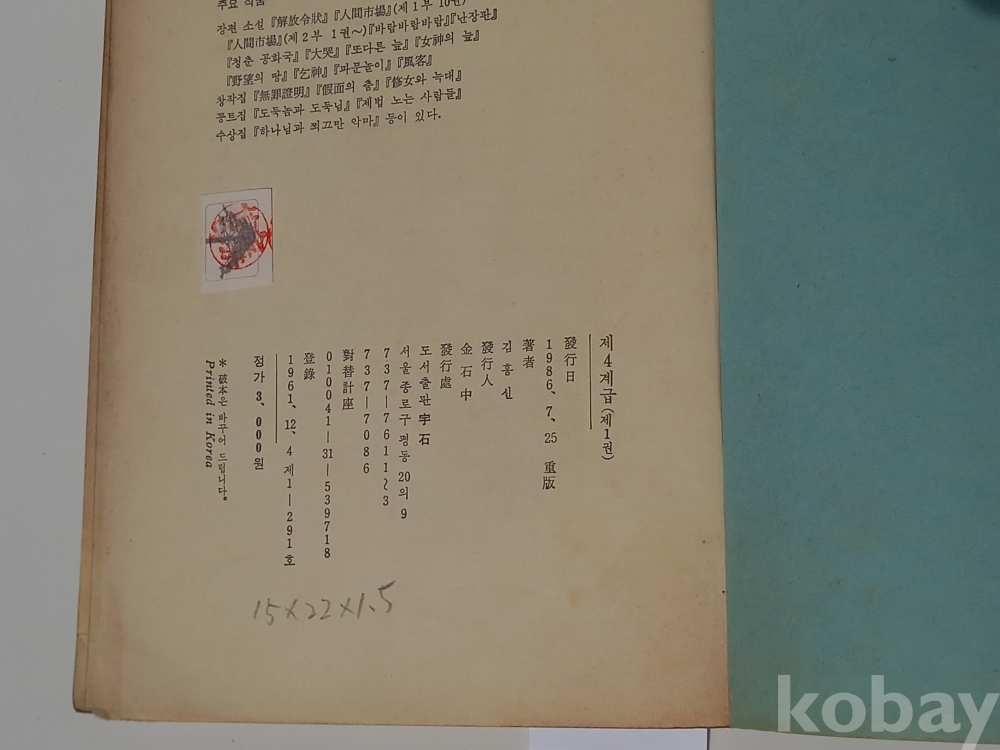 주요 작품
장편 소설 『解放令狀』 『人間市場』(제1부 10권)
『人間市場』(제2부 1권～) 『바람바람바람』 『난장판』
『청춘 공화국』 『大哭』 『또다른 늪』 『女神의 늪』
『野望의 땅』 『乞神』 『파문놀이』 『風客』
창작집 『無罪證明』 『假面의 춤』 『修女와 늑대』
꽁트집 『도둑놈과 도둑님』 『제법 노는 사람들』
수상집 『하나님과 쬐끄만 악마』 등이 있다.
제4계급(제1권)
發行日
1986、7、25 重版
著者
김홍신
發行人
金石中
發行處
도서출판 宇石
서울 종로구 평동 20의 9
737—7611~3
737—7086
對替計座
010041—31—539718
登錄
1961、12、4 제1—291호
정가 3,000원
＊破本은 바꾸어 드립니다。
Printed in Korea
15×22×1.5
kobay